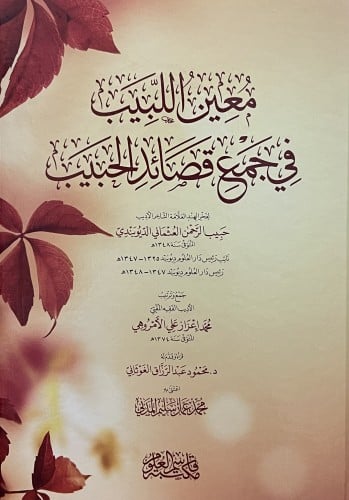 مُعِينُ اللَّبِيبِ
فِي جَمْعِ قَصَائِدِ الحَبِيبِ
لفخر الهند العلامة الشاعر الأديب
حبيب الرحمن العثماني الديوبندي
المتوفى سنة ١٣٤٨هـ
نائب رئيس دار العلوم ديوبند ١٣٢٥-١٣٤٧هـ
رئيس دار العلوم ديوبند ١٣٤٧-١٣٤٨هـ
جمع وترتيب
الأديب الفقيه المفتي
محمد إعزاز علي الأمروهي
المتوفى سنة ١٣٧٤هـ
قرأه وقدم له
د. محمود عبد الرزاق الغوثاني
اعتنى به
محمد عثمان سليم المدني
مكتبة قاسم العلوم